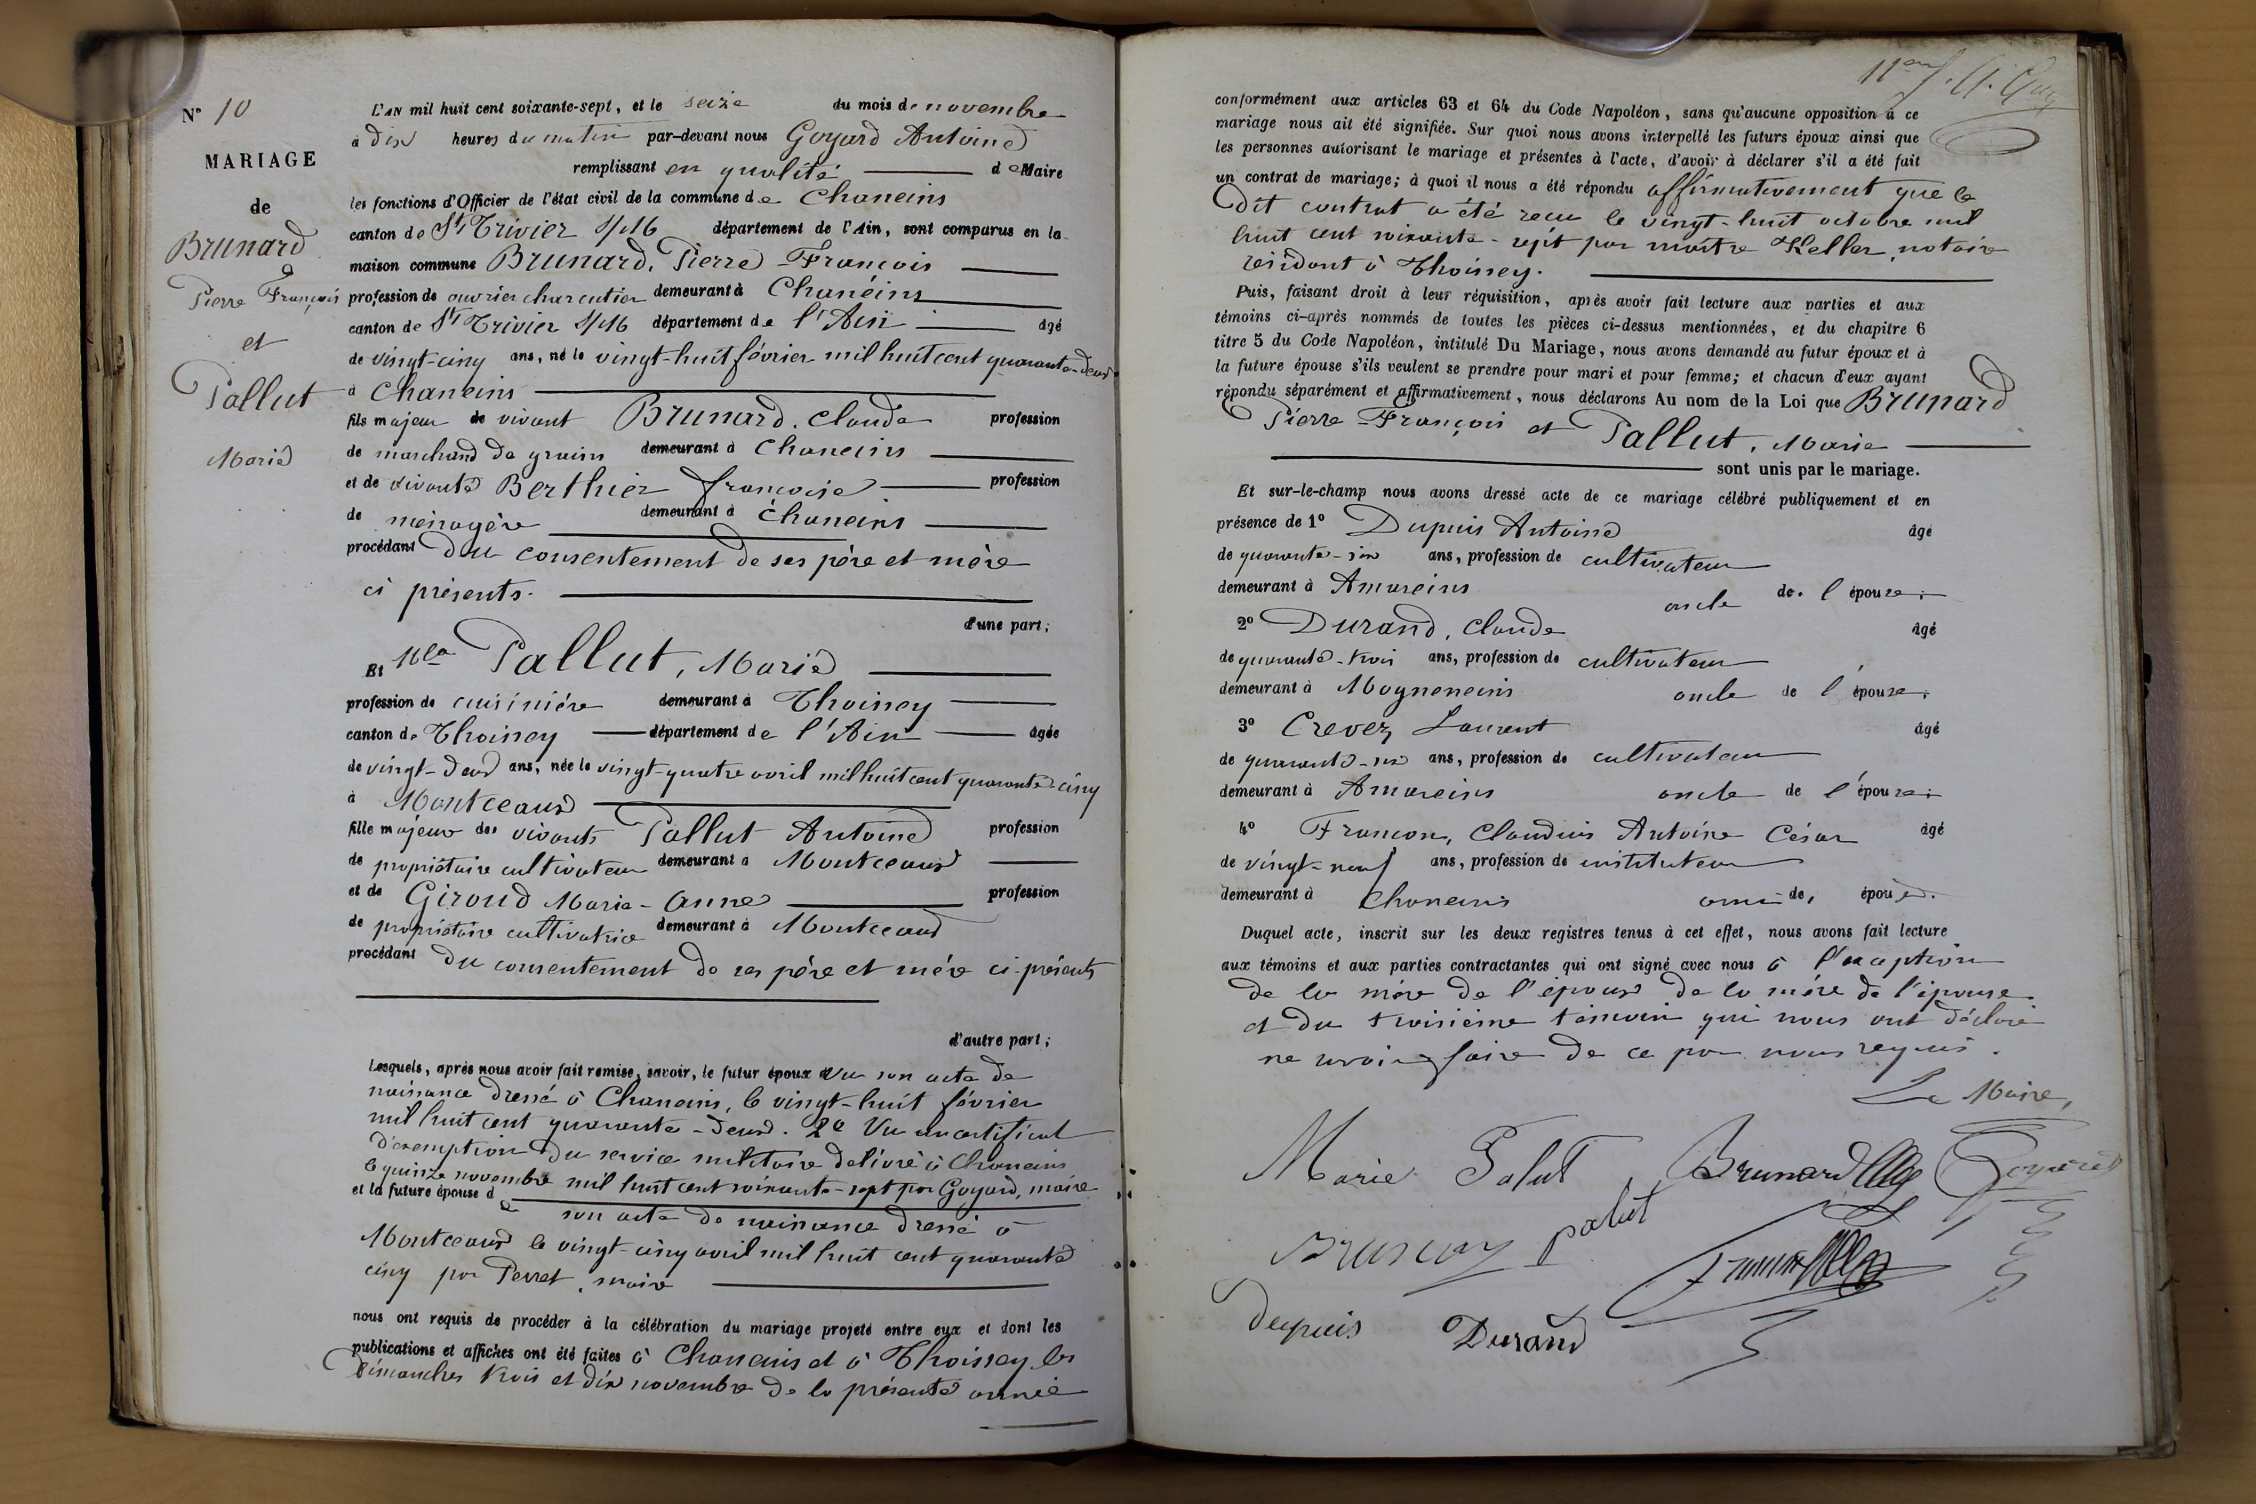 N° 10
MARIAGE
de
Brunard
Pierre François
et
Pallut
Marie
L'AN mil huit cent soixante-sept, et le seize du mois de novembre
à dix heures du matin par-devant nous Goyard Antoine
remplissant en qualité de Maire
les fonctions d'Officier de l'état civil de la commune de Chaneins
canton de St Trivier s/M6 département de l'Ain, sont comparus en la
maison commune Brunard, Pierre François
profession de ouvrier charcutier demeurant à Chanéins
canton de St Trivier s/M6 département de l'Ain âgé
de vingt-cinq ans, né le vingt-huit février mil huit cent quarante-deux
à Chaneins
fils majeur de vivant Brunard, Claude profession
de marchand de grains demeurant à Chaneins
et de vivante Berthier françoise profession
de ménagère demeurant à Chaneins
procédant du consentement de ses père et mère
ci présents.
d'une part;
Et Mlle Pallut, Marie
profession de cuisinière demeurant à Thoissey
canton de Thoissey département de l'Ain âgée
de vingt-deux ans, née le vingt-quatre avril mil huit cent quarante-cinq
à Montceaux
fille majeure des vivants Pallut Antoine profession
de propriétaire cultivateur demeurant à Montceaux
et de Giroud Marie-Anne profession
de propriétaire cultivatrice demeurant à Montceaux
procédant du consentement de ses père et mère ci-présents
d'autre part;
Lesquels, après nous avoir fait remise, savoir, le futur époux Vu son acte de
naissance dressé à Chaneins, le vingt-huit février
mil huit cent quarante-deux. 2° Vu un certificat
d'exemption du service militaire délivré à Chaneins
le quinze novembre mil huit cent soixante-sept par Goyard, maire
et la future épouse de
son acte de naissance dressé à
Montceaux le vingt-cinq avril mil huit cent quarante
cinq par Perret, maire
nous ont requis de procéder à la célébration du mariage projeté entre eux et dont les
publications et affiches ont été faites à Chaneins et à Thoissey les
dimanches trois et dix novembre de la présente année
11em f.
conformément aux articles 63 et 64 du Code Napoléon, sans qu'aucune opposition à ce
mariage nous ait été signifiée. Sur quoi nous avons interpellé les futurs époux ainsi que
les personnes autorisant le mariage et présentes à l'acte, d'avoir à déclarer s'il a été fait
un contrat de mariage; à quoi il nous a été répondu affirmativement que le
dit contrat a été reçu le vingt-huit octobre mil
huit cent soixante-sept par maître Keller, notaire
résidant à Thoissey.
Puis, faisant droit à leur réquisition, après avoir fait lecture aux parties et aux
témoins ci-après nommés de toutes les pièces ci-dessus mentionnées, et du chapitre 6
titre 5 du Code Napoléon, intitulé Du Mariage, nous avons demandé au futur époux et à
la future épouse s'ils veulent se prendre pour mari et pour femme; et chacun d'eux ayant
répondu séparément et affirmativement, nous déclarons Au nom de la Loi que Brunard
Pierre François et Pallut, Marie
sont unis par le mariage.
Et sur-le-champ nous avons dressé acte de ce mariage célébré publiquement et en
présence de 1° Dupuis Antoine âgé
de quarante-six ans, profession de cultivateur
demeurant à Amareins oncle de l'épouse;
2° Durand, Claude âgé
de quarante-trois ans, profession de cultivateur
demeurant à Mogneneins oncle de l'épouse;
3° Crevez Laurent âgé
de quarante-six ans, profession de cultivateur
demeurant à Amareins oncle de l'épouse;
4° Françon, Claudius Antoine César âgé
de vingt-neuf ans, profession de instituteur
demeurant à Chaneins ami des époux.
Duquel acte, inscrit sur les deux registres tenus à cet effet, nous avons fait lecture
aux témoins et aux parties contractantes qui ont signé avec nous à l'exception
de la mère de l'époux de la mère de l'épouse
et du troisième témoin qui nous ont déclaré
ne savoir faire de ce par nous requis.
Le Maire,
Marie Palut Brunard Goyard
palut
Dupuis Durand